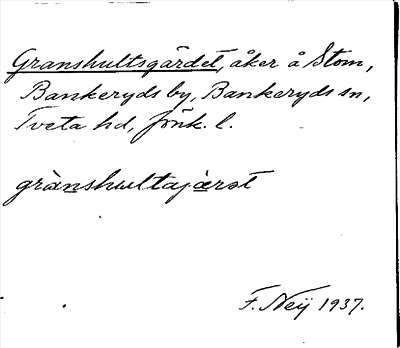 Granshultsgärdet, åker å Stom,
Bankeryds by, Bankeryds sn,
Tveta hd, Jönk. l.
grànshultajæ̀rət
F. Neij 1937.